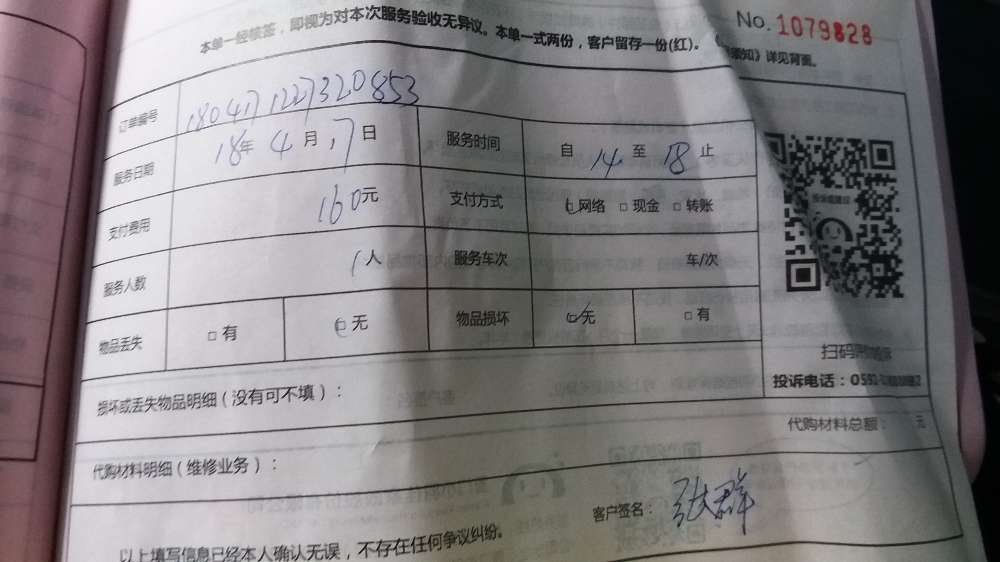 No. 1079828
本单一经核签，即视为对本次服务验收无异议。本单一式两份，客户留存一份(红)。
须知》详见背面。
订单编号 1804171227320853
服务日期 18年 4月 17日 服务时间 自 14 至 18 止
支付费用 160元 支付方式 网络 □ 现金 □ 转账
服务人数 1人 服务车次 车/次
物品丢失 □ 有 无 物品损坏 无 □ 有
扫码
投诉电话：0592-
损坏或丢失物品明细（没有可不填）：
代购材料总额： 元
代购材料明细（维修业务）：
客户签名：张群
以上填写信息已经本人确认无误，不存在任何争议纠纷。